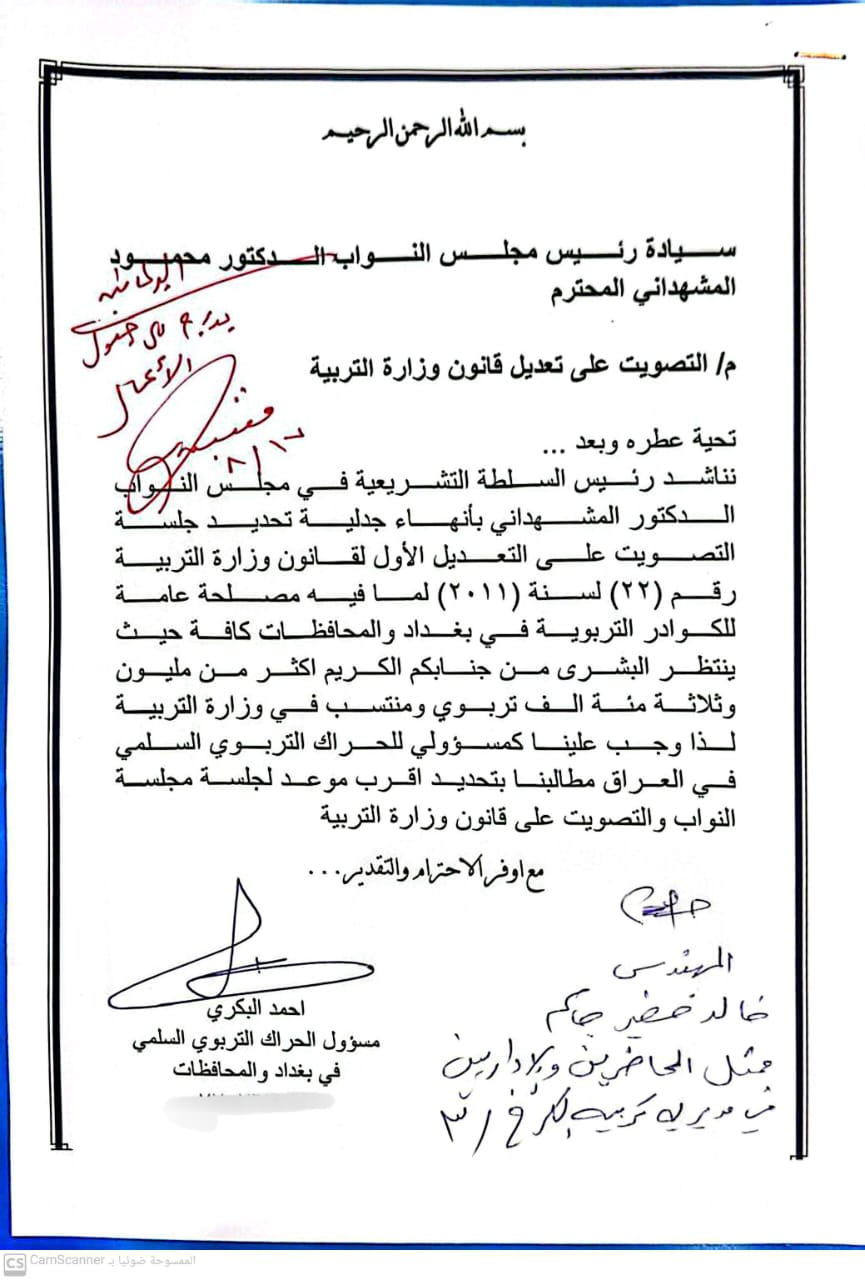 بسم الله الرحمن الرحيم
سيادة رئيس مجلس النواب الدكتور محمود
المشهداني المحترم
م/ التصويت على تعديل قانون وزارة التربية
يدرج على جدول
الأعمال
٨/١٧
تحية عطره وبعد ...
نناشد رئيس السلطة التشريعية في مجلس النواب
الدكتور المشهداني بأنهاء جدلية تحديد جلسة
التصويت على التعديل الأول لقانون وزارة التربية
رقم (٢٢) لسنة (٢٠١١) لما فيه مصلحة عامة
للكوادر التربوية في بغداد والمحافظات كافة حيث
ينتظر البشرى من جنابكم الكريم اكثر من مليون
وثلاثة مئة الف تربوي ومنتسب في وزارة التربية
لذا وجب علينا كمسؤولي للحراك التربوي السلمي
في العراق مطالبنا بتحديد اقرب موعد لجلسة مجلسة
النواب والتصويت على قانون وزارة التربية
مع اوفر الاحترام والتقدير...
المهندس
خالد خضير جاكم
ممثل المحاضرين والاداريين
في مديرية تربية الكرخ / ٣
احمد البكري
مسؤول الحراك التربوي السلمي
في بغداد والمحافظات
CS CamScanner الممسوحة ضوئيا بـ